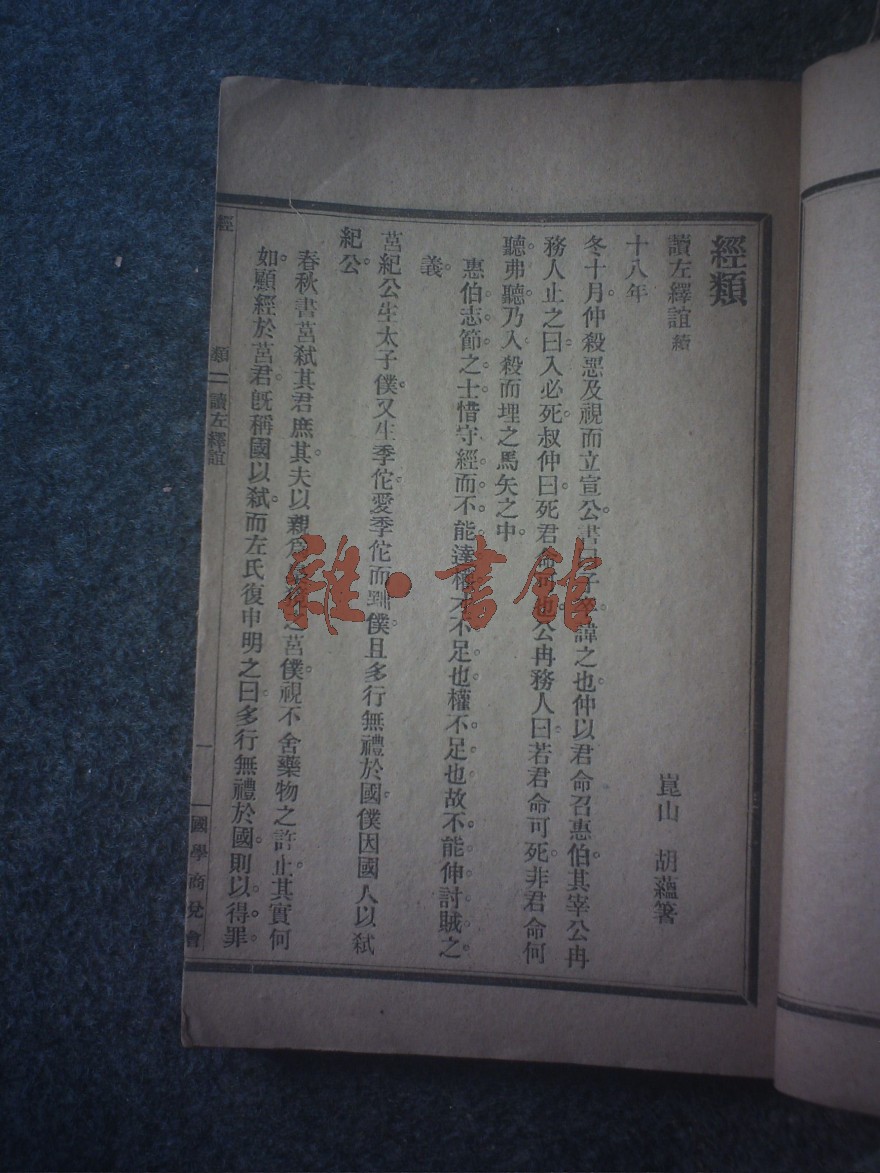 經類
讀左繹誼 續
崑山 胡蘊箸
十八年
冬十月仲殺惡及視而立宣公書曰子卒諱之也仲以君命召惠伯其宰公冉
務人止之曰入必死叔仲曰死君命可也公冉務人曰若君命可死非君命何
聽弗聽乃入殺而埋之馬矢之中
惠伯志節之士惜守經而不能達權才不足也權不足也故不能伸討賊之
義
莒紀公生太子僕又生季佗愛季佗而黜僕且多行無禮於國僕因國人以弒
紀公
春秋書莒弒其君庶其夫以親爲 之莒僕視不舍藥物之許止其實何
如顧經於莒君旣稱國以弒而左氏復申明之曰多行無禮於國則以得罪
經類二 讀左繹誼 一 國學商兌會
雜·書館